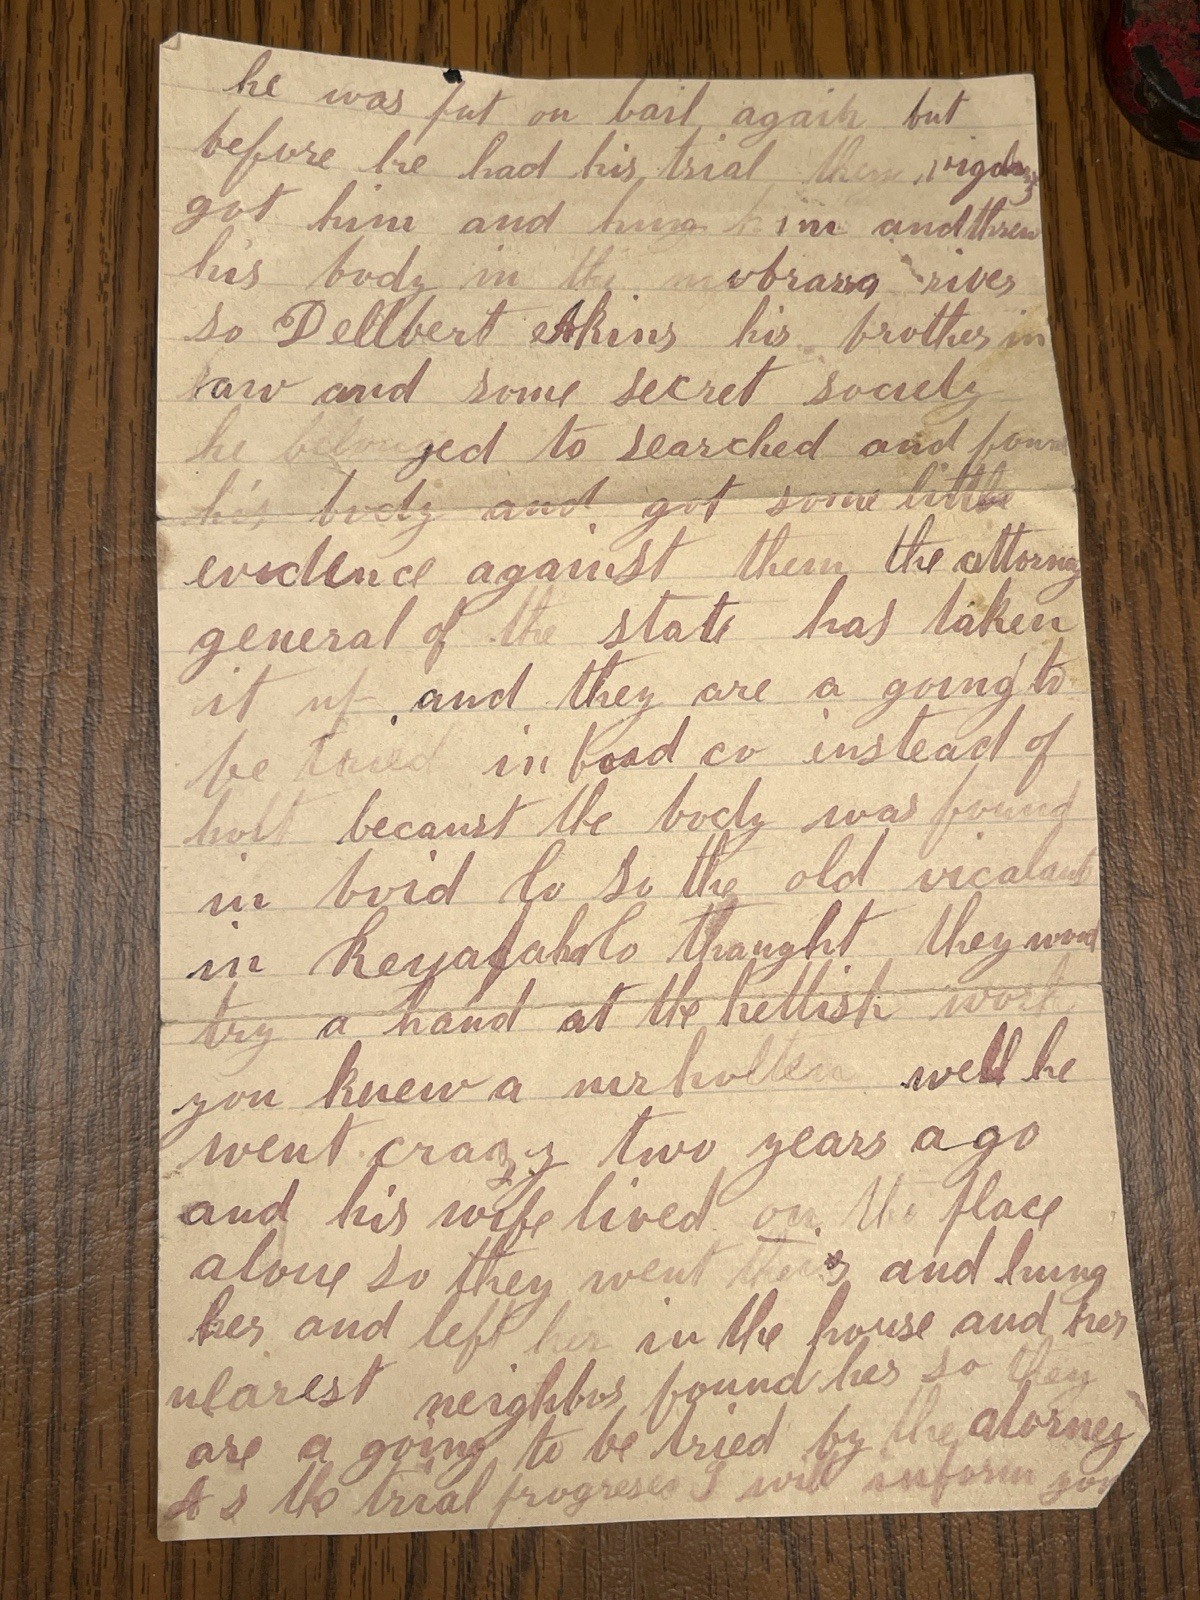 he was put on bail again but
before he had his trial them vigelants
got him and hung him and threw
his body in the niobrara river
so Dellbert Akins his brother in
law and some secret society
he belonged to searched and found
his body and got some little
evidence against them the attorney
general of the state has taken
it up and they are a going to
be tried in boid co instead of
holt becaust the body was found
in boid Co so the old vicalants
in Keyapaha Co thaught they woud
try a hand at the hellish work
you knew a mr holten well he
went crazy two years ago
and his wife lived on the place
alone so they went there and hung
her and left her in the house and her
nearest neighbor found her so they
are a going to be tried by the atorney
As the trial progreses I will inform you